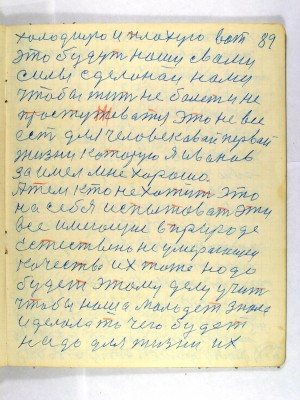 холодную и плохую вот 89
это будут нашу свами
силы сделанаи нами
чтобы жить не болеть и не
простуживатся это не все
ест для человека вай первай
жизни которую я иванов
заимел мне хорошо.
Атем кто не хотит это
на себя испытоват эти
все имеющие в природе
сетествено не умерающи
качества их тоже надо
будет этому делу учит
чтобы наша молодет знала
и делала то чего будет
надо для жизни их